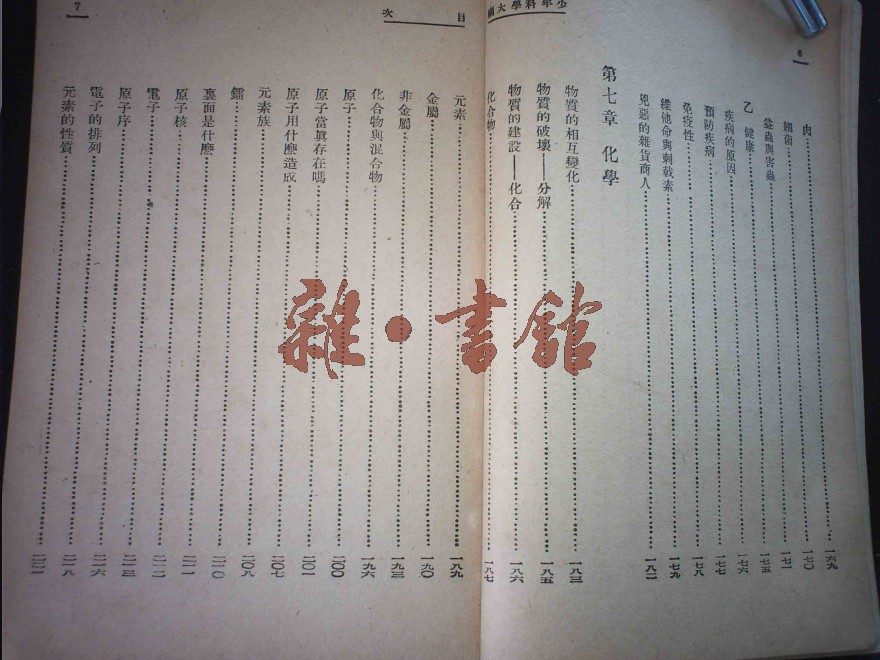 少年科學大綱
6
肉 一六九
細菌 一七〇
益蟲與害蟲 一七一
乙 健康 一七五
疾病的原因 一七六
預防疾病 一七七
免疫性 一七八
維他命與刺戟素 一七九
兇惡的雜貨商人 一八二
第七章 化學
物質的相互變化 一八三
物質的破壞——分解 一八五
物質的建設——化合 一八六
化合物 一八七
目次
7
元素 一八九
金屬 一九〇
非金屬 一九三
化合物與混合物 一九六
原子 二〇〇
原子當眞存在嗎 二〇一
原子用什麼造成 二〇七
元素族 二〇八
鐳 二一〇
裏面是什麼 二一一
原子核 二一二
電子 二一三
原子序 二一六
電子的排列 二一八
元素的性質 二二一
雜·書館